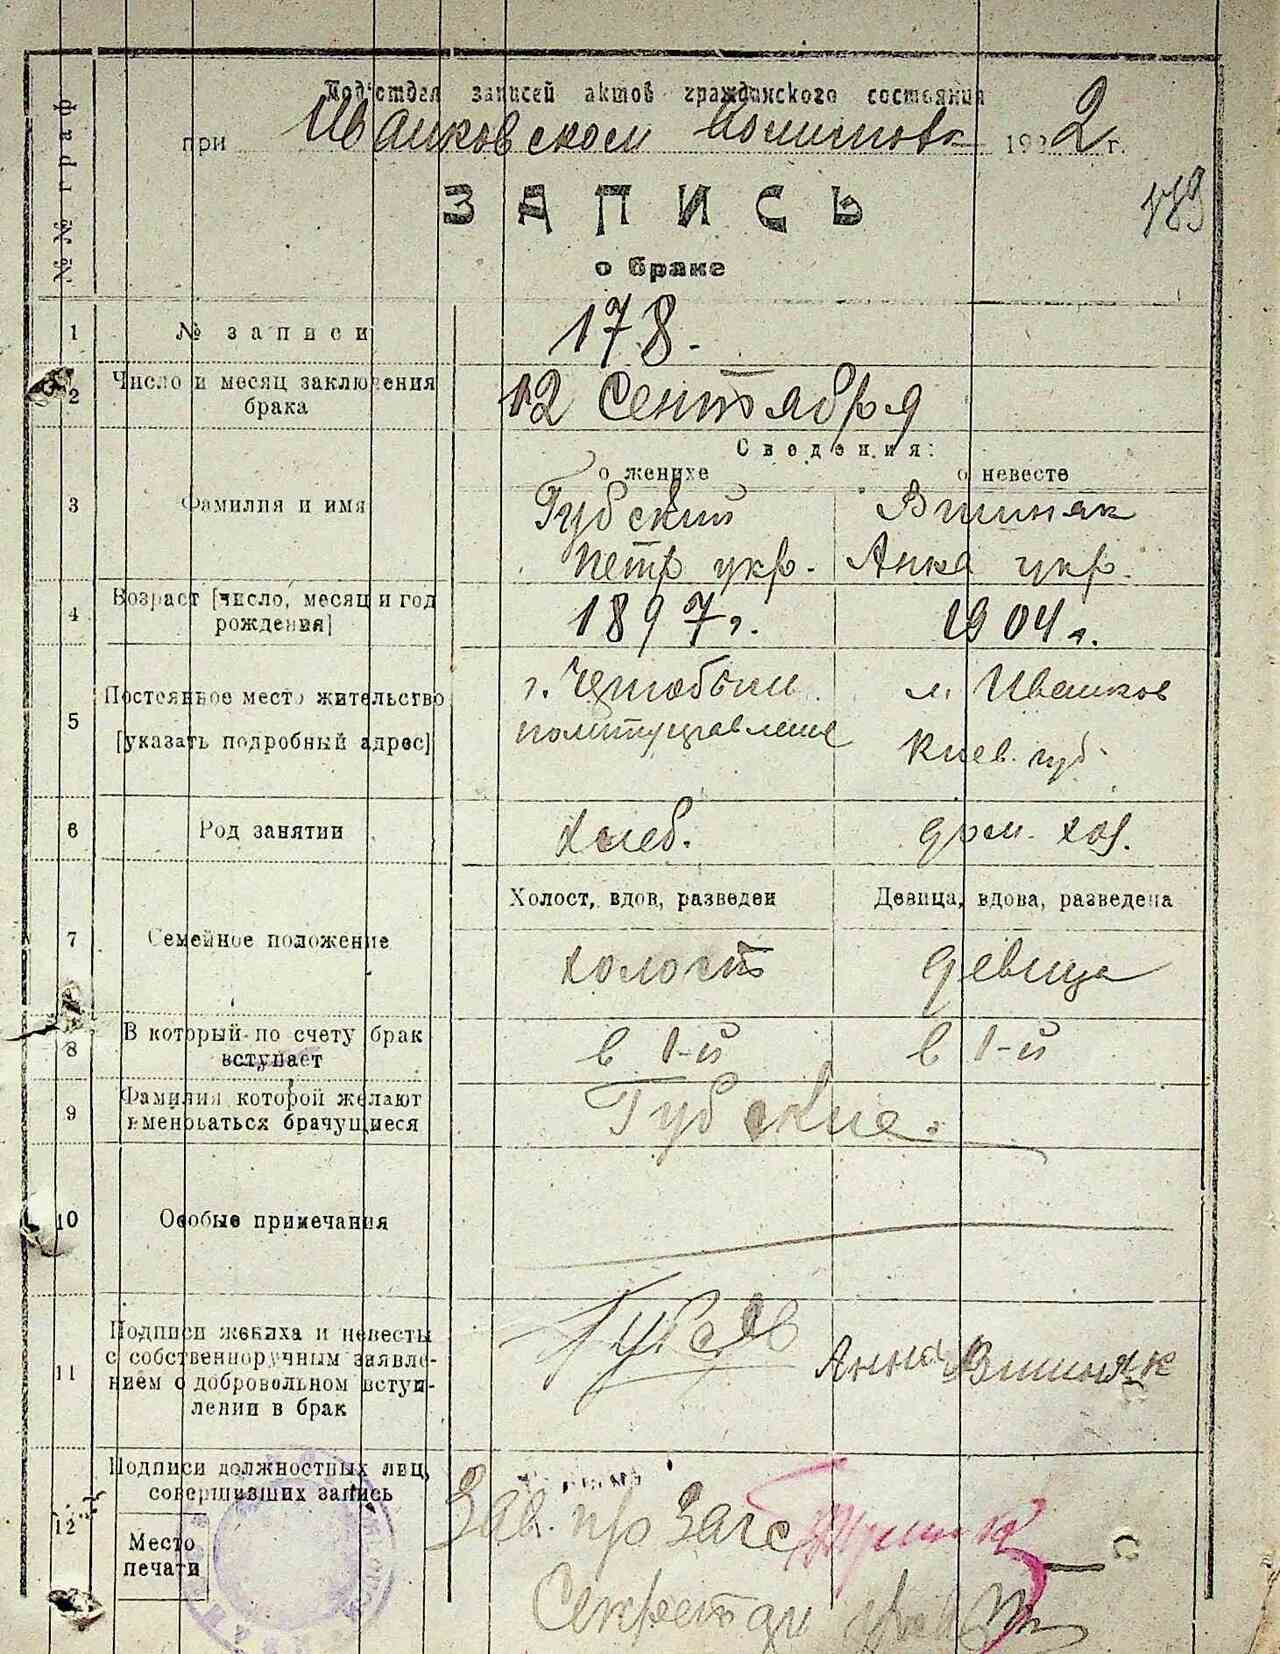 №№ граф
Подотдел записей актов гражданского состояния
при Иванковском 1922 г.
189
ЗАПИСЬ
о браке
1 № записи 178.
2 Число и месяц заключения брака 12 Сентября
Сведения:
о женихе о невесте
3 Фамилия и имя Губский Вишняк
Петр укр. Анна укр.
4 Возраст [число, месяц и год рождения] 1897 г. 1904 г.
5 Постоянное место жительство г. м. Иванков
[указать подробный адрес] политуправление Киев. губ.
6 Род занятии хлеб. дом. хоз.
Холост, вдов, разведен Девица, вдова, разведена
7 Семейное положение холост девица
8 В который по счету брак вступает в 1-й в 1-й
9 Фамилия которой желают именоваться брачущиеся Губские.
10 Особые примечания
11 Подписи жениха и невесты
с собственноручным заявле-
нием о добровольном вступ-
лении в брак Анна Вишняк
12 Подписи должностных лиц,
совершивших запись
Зав. п/о Загс
Место
печати
Секретарь